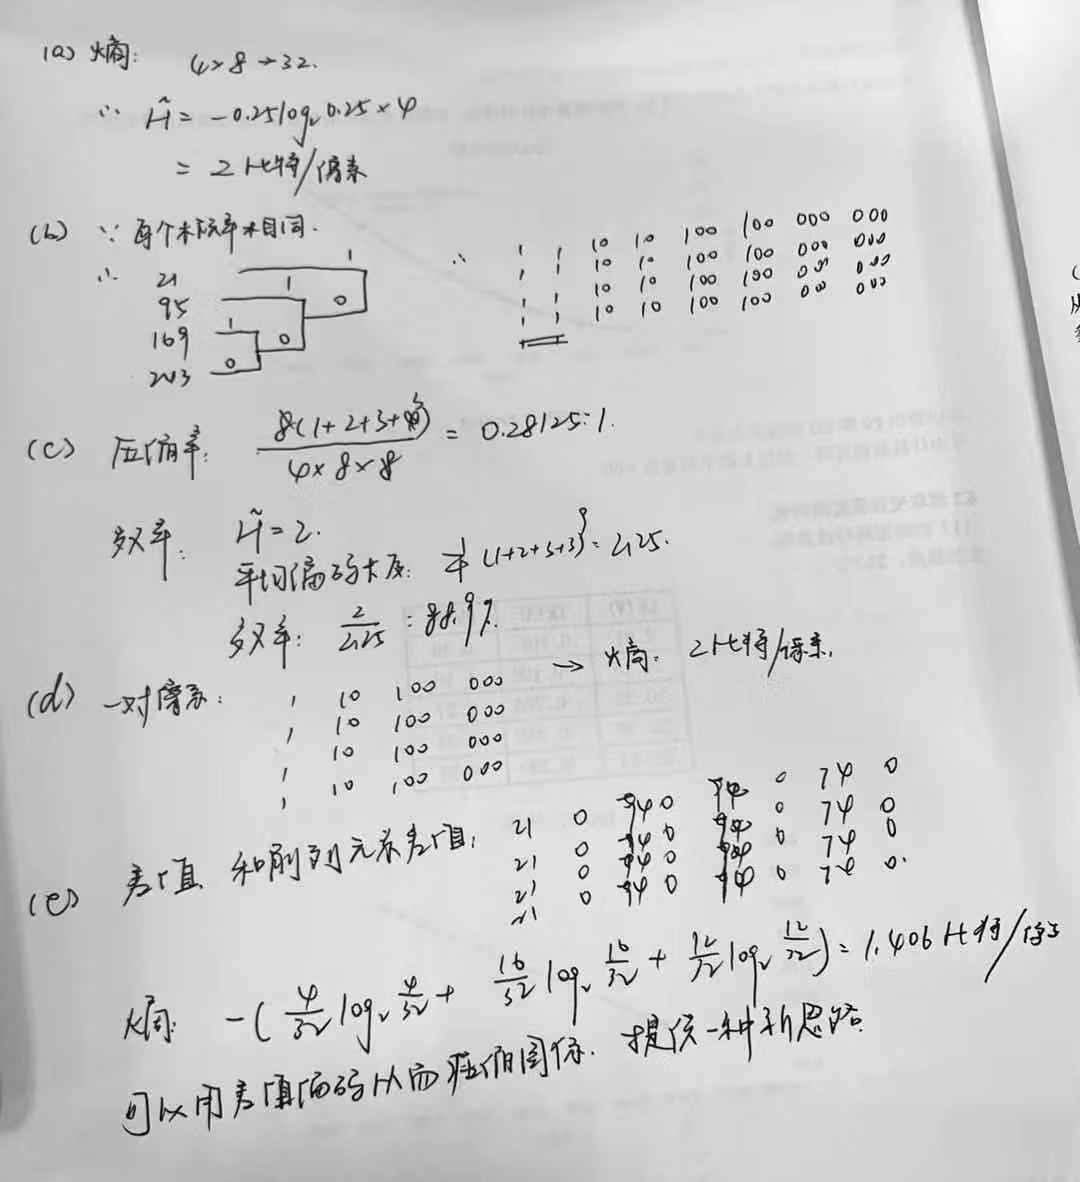 (a) 熵: 4×8→32.
∴ H̃ = -0.25log₂0.25×4
= 2比特/像素
(b) ∵ 每个概率相同.
∴ 21
95
169
243
1
1
0
1
0
0
∴
1 1 10 10 100 100 000 000
1 1 10 10 100 100 000 000
1 1 10 10 100 100 000 000
1 1 10 10 100 100 000 000
(c) 压缩率: 8(1+2+3+3) / 4×8×8 = 0.28125:1.
效率: H̃=2.
平均编码长度: 1/4 (1+2+3+3) = 2.25.
效率: 2/2.25 = 88.9%.
(d) 一对像素: → 熵: 2比特/像素.
1 10 100 000
1 10 100 000
1 10 100 000
1 10 100 000
(e) 差值 和前列元素差值:
21 0 74 0 74 0 74 0
21 0 74 0 74 0 74 0
21 0 74 0 74 0 74 0
21 0 74 0 74 0 74 0.
熵: -(4/32 log₂ 4/32 + 16/32 log₂ 16/32 + 12/32 log₂ 12/32) = 1.406比特/像素
可以用差值编码从而压缩图像. 提供一种新思路.